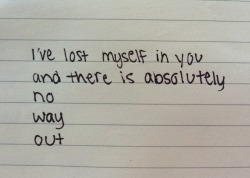 I've lost myself in you
and there is absolutely
no
way
out